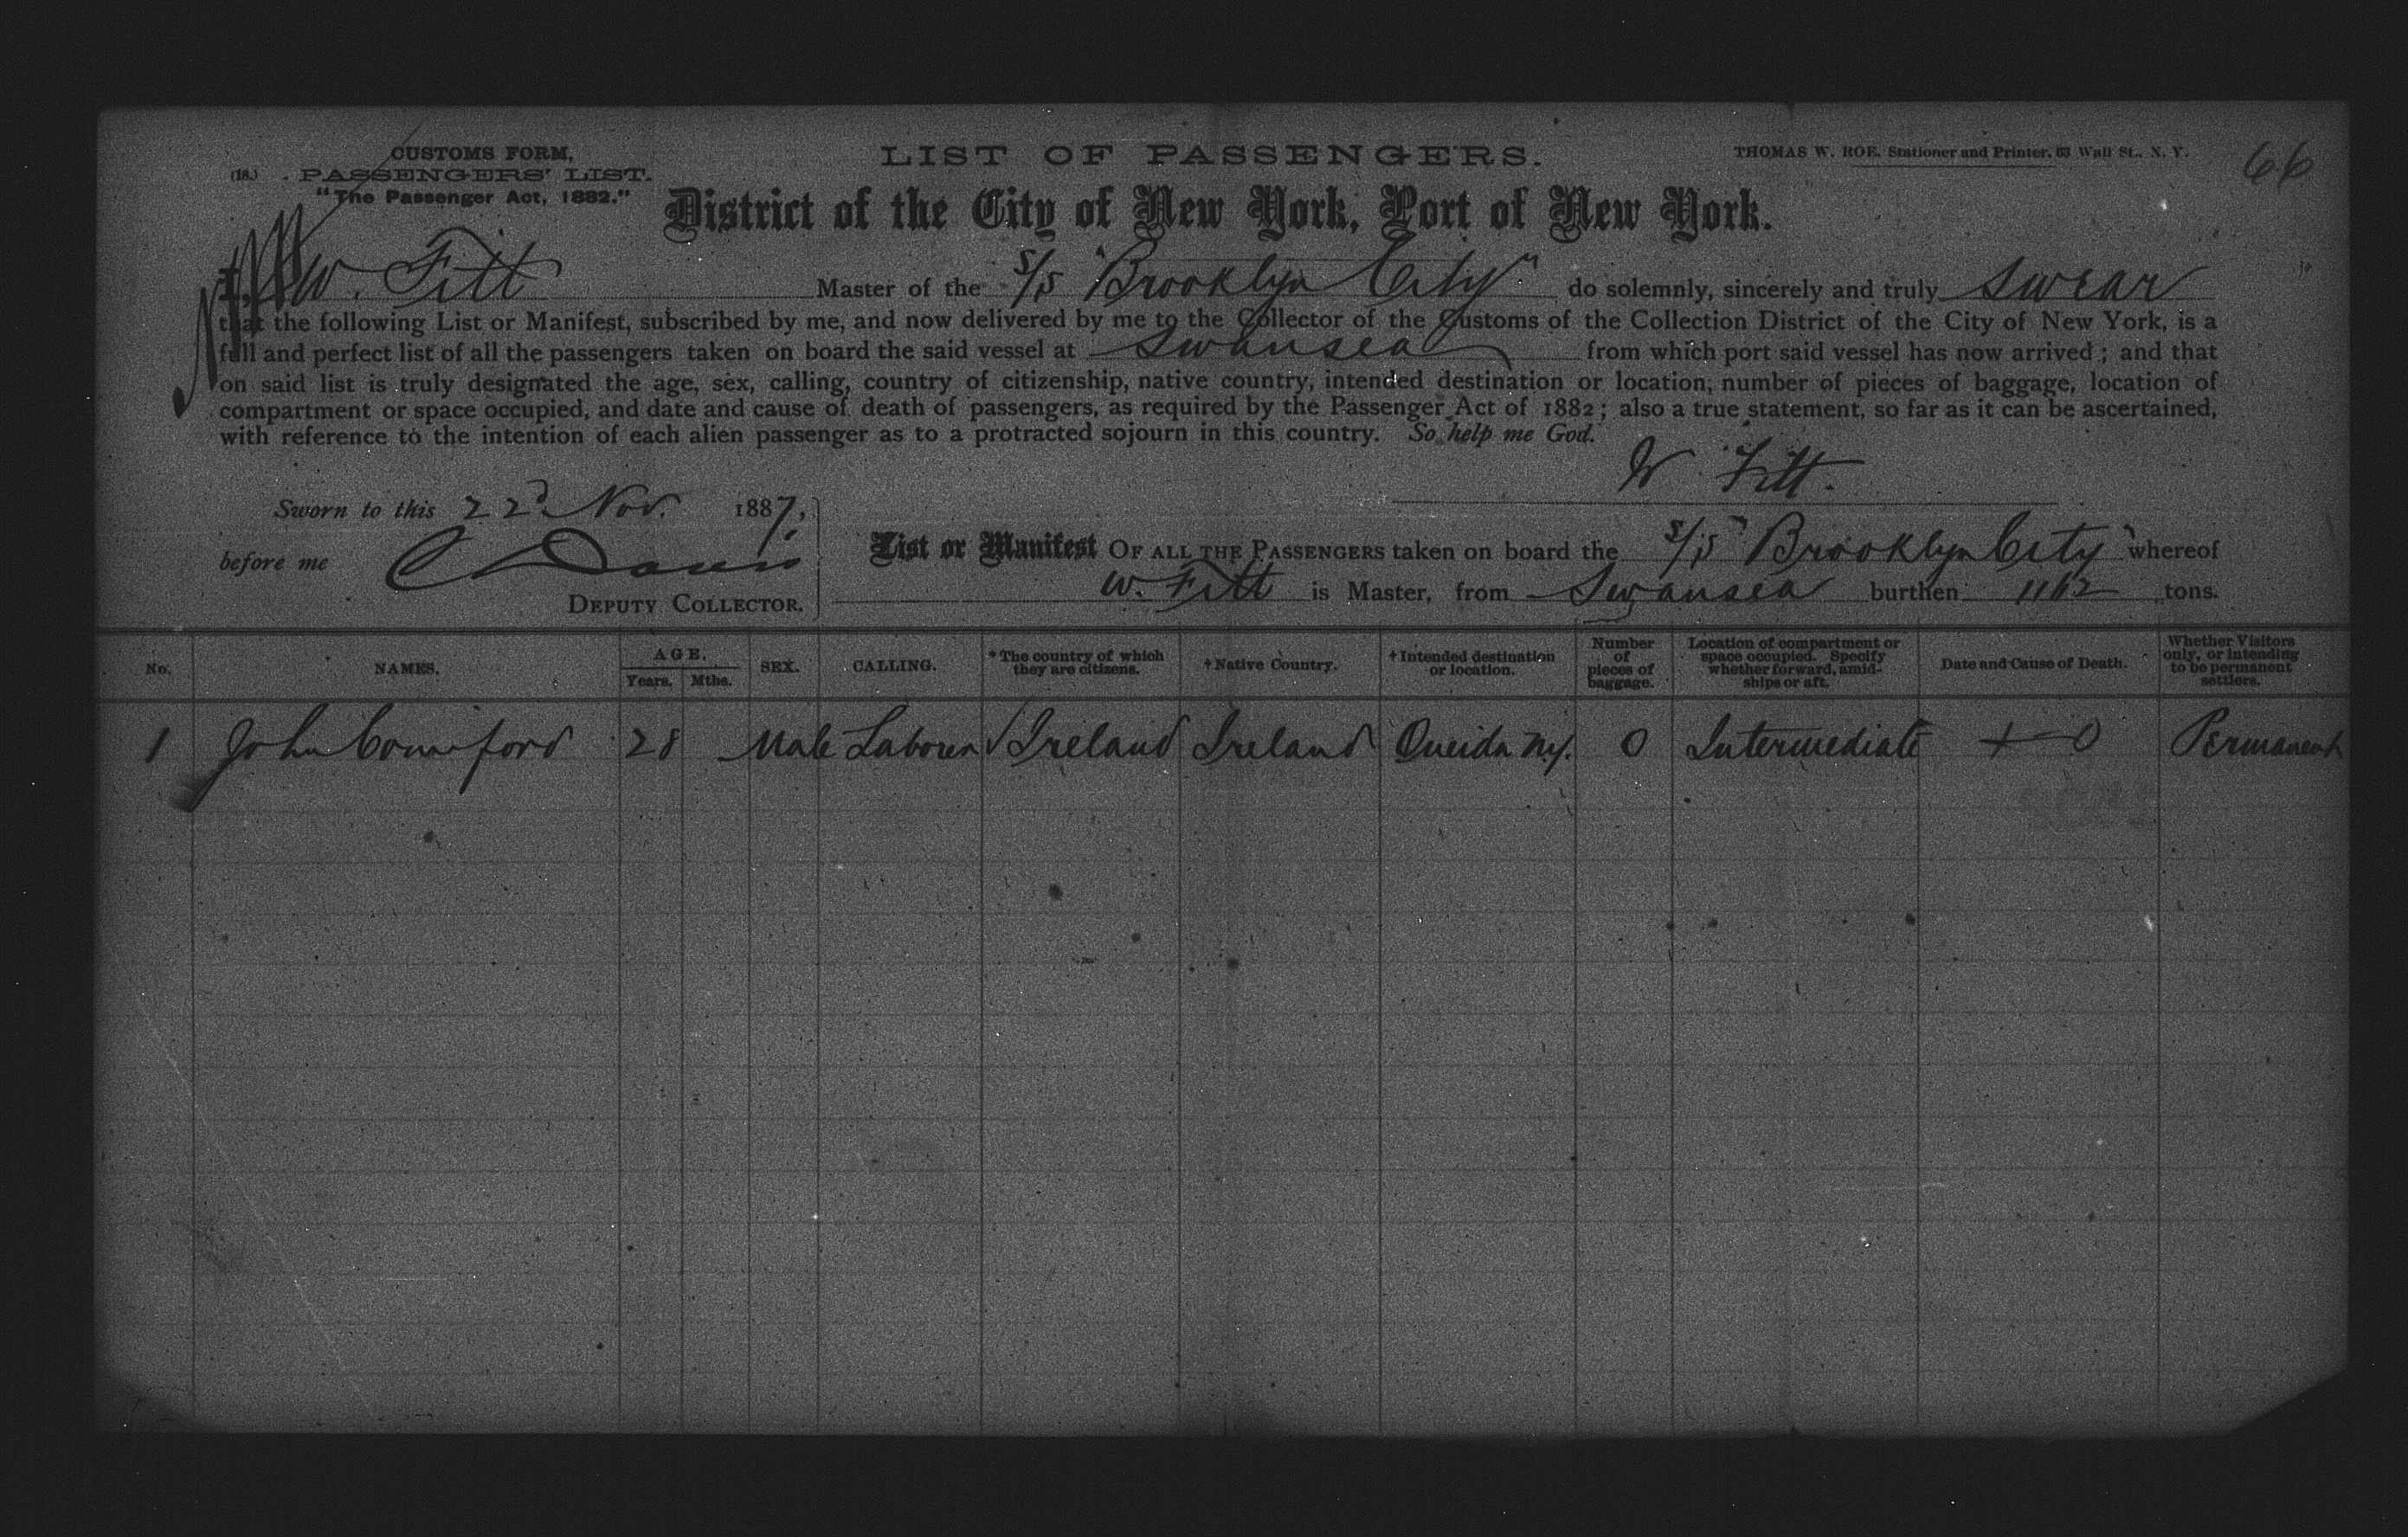 CUSTOMS FORM,
(18.) PASSENGERS' LIST.
"The Passenger Act, 1882."
LIST OF PASSENGERS.
THOMAS W. ROE, Stationer and Printer, 63 Wall St., N. Y.
66
District of the City of New York, Port of New York.
I, W. Fitt Master of the S/S "Brooklyn City" do solemnly, sincerely and truly swear
that the following List or Manifest, subscribed by me, and now delivered by me to the Collector of the Customs of the Collection District of the City of New York, is a
full and perfect list of all the passengers taken on board the said vessel at Swansea from which port said vessel has now arrived; and that
on said list is truly designated the age, sex, calling, country of citizenship, native country, intended destination or location, number of pieces of baggage, location of
compartment or space occupied, and date and cause of death of passengers, as required by the Passenger Act of 1882; also a true statement, so far as it can be ascertained,
with reference to the intention of each alien passenger as to a protracted sojourn in this country. So help me God.
W Fitt.
Sworn to this 22d Nov. 1887,
before me
DEPUTY COLLECTOR.
List or Manifest OF ALL THE PASSENGERS taken on board the S/S "Brooklyn City" whereof
W. Fitt is Master, from Swansea burthen 1162 tons.
No. NAMES. AGE. Years. Mths. SEX. CALLING. *The country of which they are citizens. †Native Country. †Intended destination or location. Number of pieces of baggage. Location of compartment or space occupied. Specify whether forward, amidships or aft. Date and Cause of Death. Whether Visitors only, or intending to be permanent settlers.
1 John 28 Male Laborer Ireland Ireland Oneida N.Y. 0 Intermediate + 0 Permanent